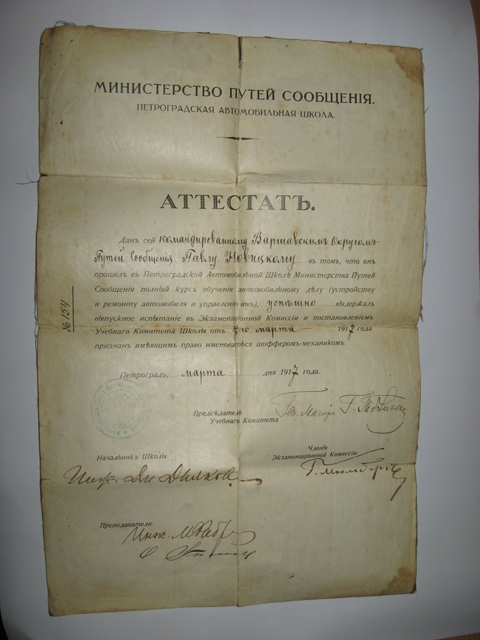 МИНИСТЕРСТВО ПУТЕЙ СООБЩЕНІЯ.
ПЕТРОГРАДСКАЯ АВТОМОБИЛЬНАЯ ШКОЛА.
АТТЕСТАТЪ.
Данъ сей командированному Варшавскимъ Округомъ
Путей Сообщенія Павлу Новицкому въ томъ, что онъ
прошелъ въ Петроградской Автомобильной Школѣ Министерства Путей
Сообщенія полный курсъ обученія автомобильному дѣлу (устройству
и ремонту автомобиля и управленію имъ), успѣшно выдержалъ
выпускное испытаніе въ Экзаменаціонной Комиссіи и постановленіемъ
Учебнаго Комитета Школы отъ марта 1917 года
признанъ имѣющимъ право именоваться шофферомъ-механикомъ.
№ 1514
Петроградъ, марта дня 1917 года.
Предсѣдатель
Учебнаго Комитета
Начальникъ Школы
Члены
Экзаменаціонной Комиссіи
Инж.
Преподаватели
Инж.